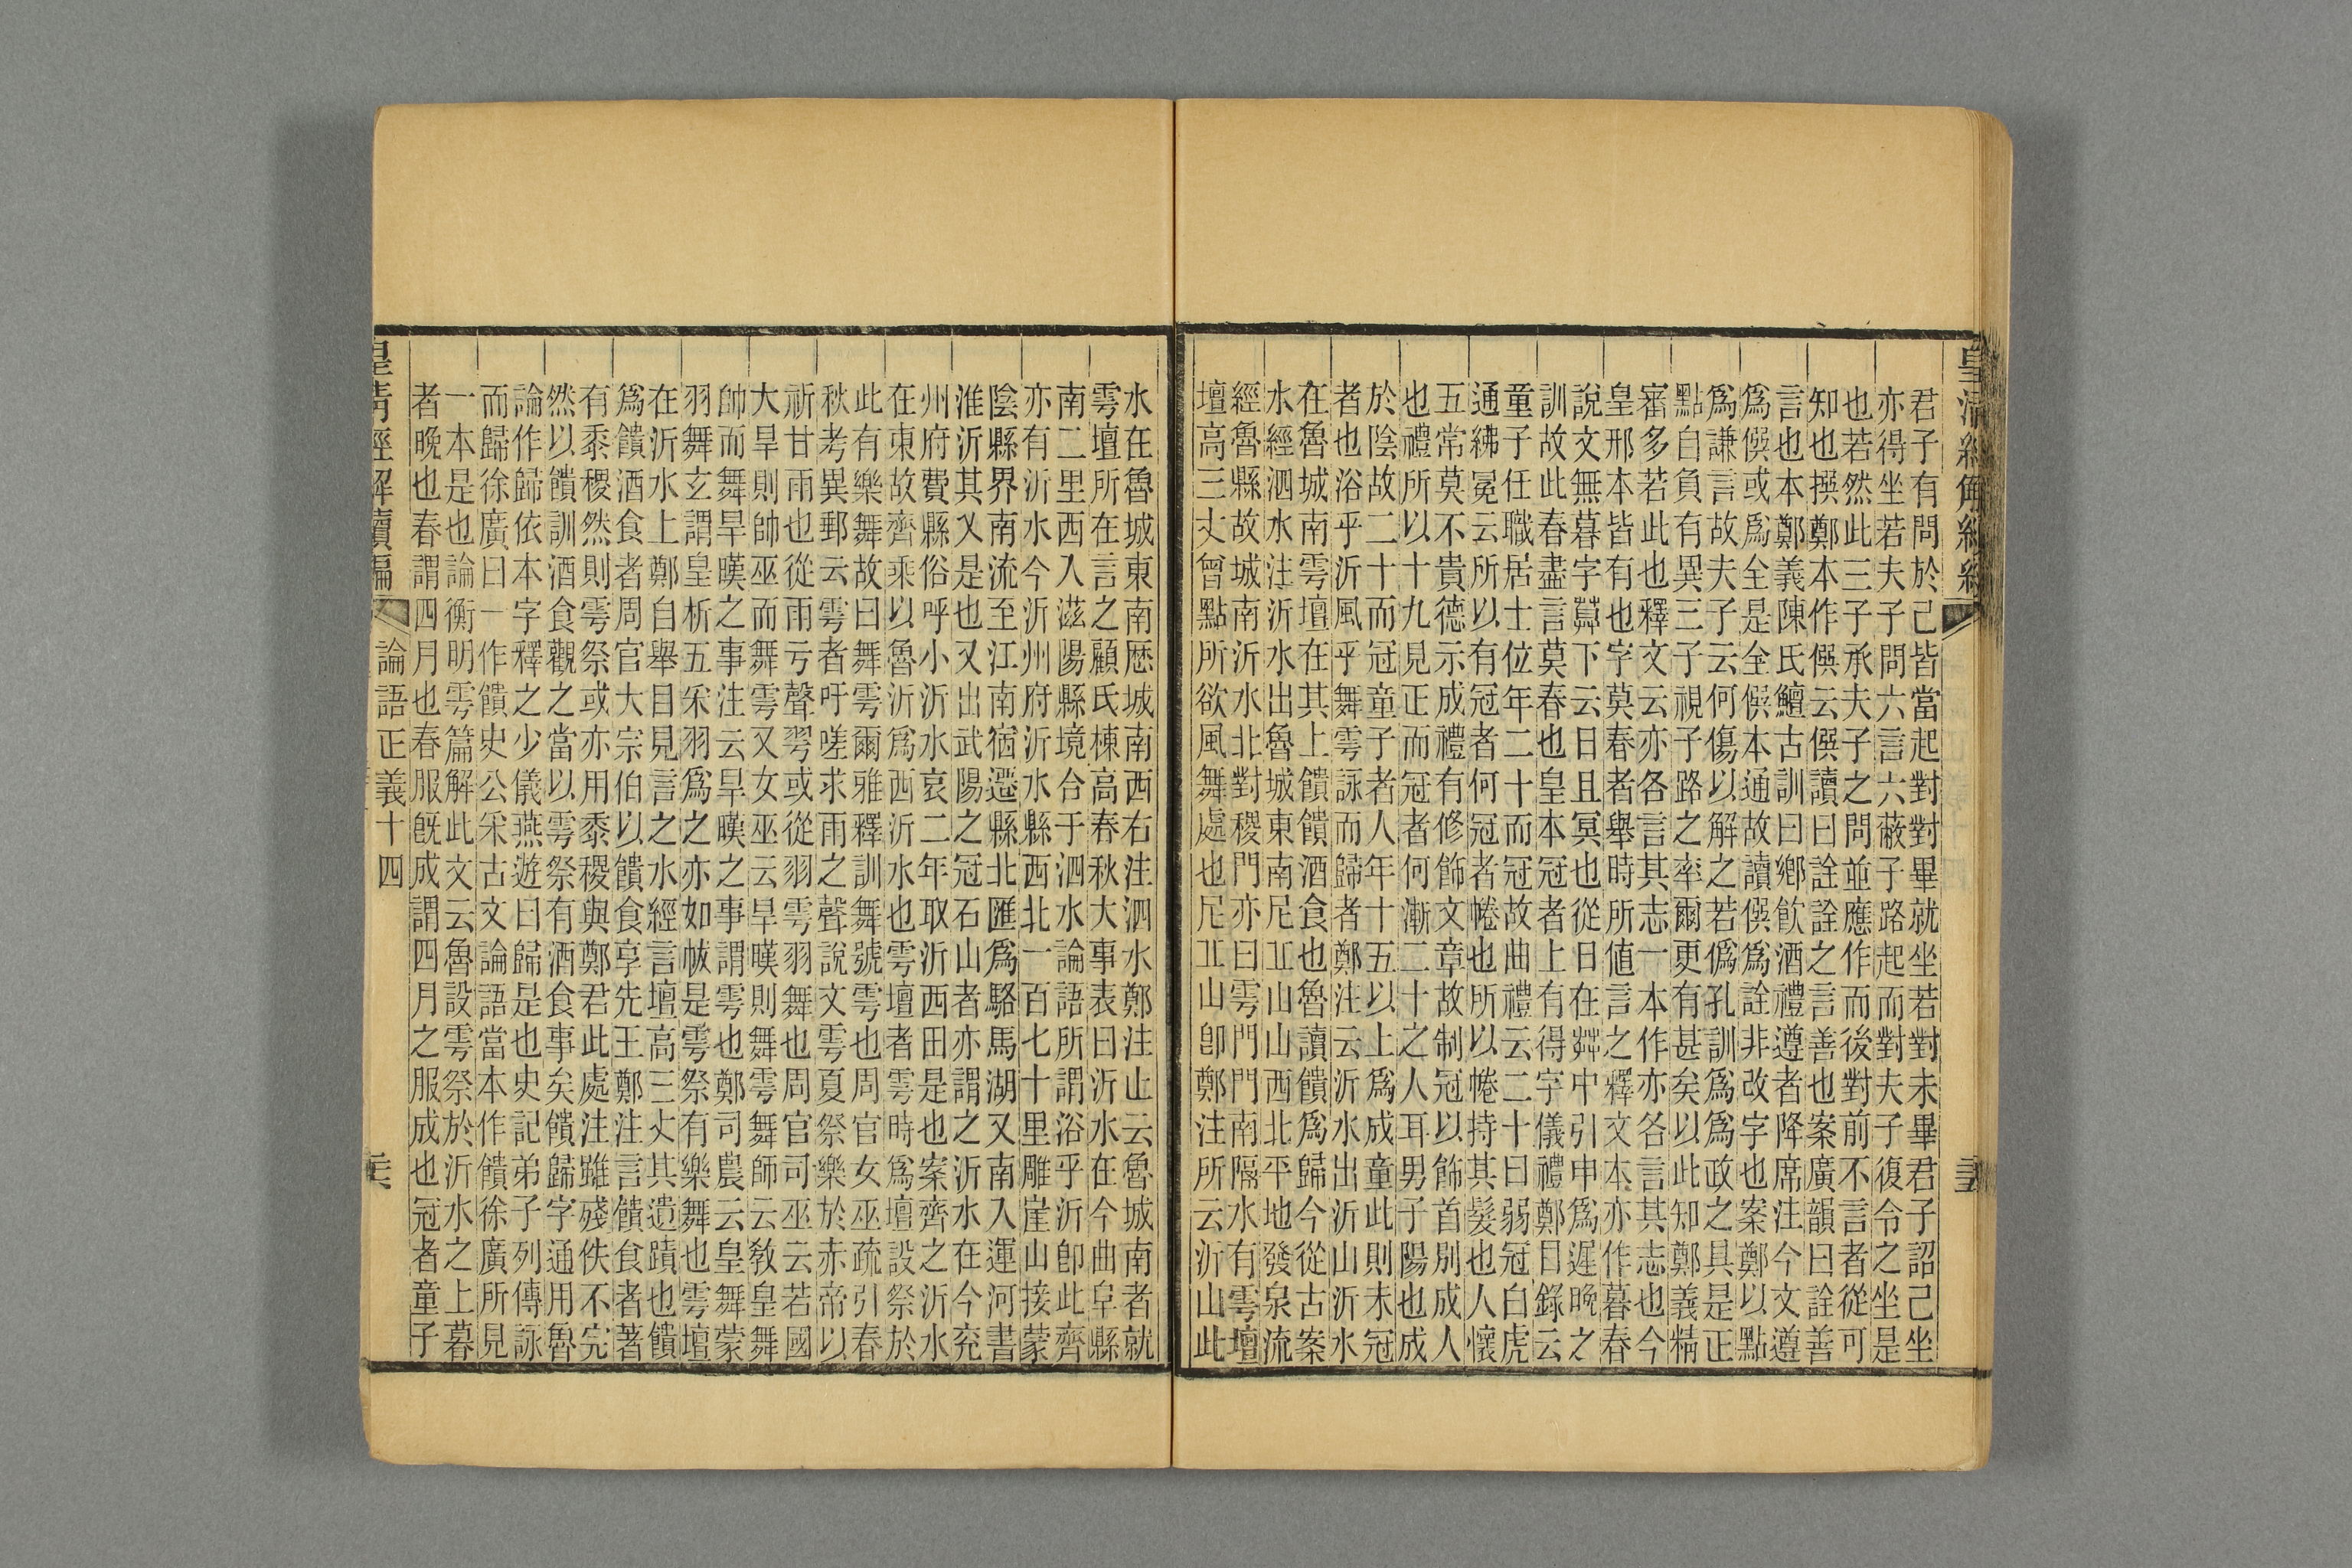 君子有問於己皆當起對對畢就坐若對未畢君子詔己坐
亦得坐若夫子問六言六蔽子路起而對夫子復令之坐是
也若然此三子承夫子之問並應作而後對前不言者從可
知也撰鄭本作僎云僎讀曰詮詮之言善也案廣韻曰詮善
言也本鄭義陳氏鱣古訓曰鄉飲酒禮遵者降席注今文遵
爲僎或爲全是全僎本通故讀僎爲詮非改字也案鄭以點
爲謙言故夫子云何傷以解之若僞孔訓爲爲政之具是正
點自負有異三子視子路之率爾更有甚矣以此知鄭義精
審多若此也釋文云亦各言其志一本作亦各言其志也今
皇邢本皆有也字莫春者舉時所值言之釋文本亦作暮春
說文無暮字莫下云日且冥也從日在茻中引申爲遲晚之
訓故此春盡言莫春也皇本冠者上有得字儀禮鄭目錄云
童子任職居士位年二十而冠故曲禮云二十曰弱冠白虎
通紼冕云所以有冠者何冠者帣也所以帣持其髮也人懷
五常莫不貴德示成禮有修飾文章故制冠以飾首別成人
也禮所以十九見正而冠者何漸二十之人耳男子陽也成
於陰故二十而冠童子者人年十五以上爲成童此則未冠
者也浴乎沂風乎舞雩詠而歸者鄭注云沂水出沂山沂水
在魯城南雩壇在其上饋饋酒食也魯讀饋爲歸今從古案
水經泗水注沂水出魯城東南尼丘山山西北平地發泉流
經魯縣故城南沂水北對稷門亦曰雩門門南隔水有雩壇
壇高三丈曾點所欲風舞處也尼丘山卽鄭注所云沂山此
水在魯城東南歷城南西右注泗水鄭注止云魯城南者就
雩壇所在言之顧氏棟高春秋大事表曰沂水在今曲阜縣
南二里西入滋陽縣境合于泗水論語所謂浴乎沂卽此齊
亦有沂水今沂州府沂水縣西北一百七十里雕崖山接蒙
陰縣界南流至江南宿遷縣北匯爲駱馬湖又南入運河書
淮沂其乂是也又出武陽之冠石山者亦謂之沂水在今兖
州府費縣俗呼小沂水哀二年取沂西田是也案齊之沂水
在東故齊乘以魯沂爲西沂水也雩壇者雩時爲壇設祭於
此有樂舞故曰舞雩爾雅釋訓舞號雩也周官女巫疏引春
秋考異郵云雩者吁嗟求雨之聲說文雩夏祭樂於赤帝以
祈甘雨也從雨亏聲䨞或從羽雩羽舞也周官司巫云若國
大旱則帥巫而舞雩又女巫云旱暵則舞雩舞師云敎皇舞
帥而舞旱暵之事注云旱暵之事謂雩也鄭司農云皇舞蒙
羽舞玄謂皇析五采羽爲之亦如帗是雩祭有樂舞也雩壇
在沂水上鄭自舉目見言之水經言壇高三丈其遺蹟也饋
爲饋酒食者周官大宗伯以饋食享先王鄭注言饋食者著
有黍稷然則雩祭或亦用黍稷與鄭君此處注雖殘佚不完
然以饋訓酒食觀之當以雩祭有酒食事矣饋歸字通用魯
論作歸依本字釋之少儀燕遊曰歸是也史記弟子列傳詠
而歸徐廣曰一作饋史公采古文論語當本作饋徐廣所見
一本是也論衡明雩篇解此文云魯設雩祭於沂水之上暮
者晚也春謂四月也春服旣成謂四月之服成也冠者童子
論語正義十四